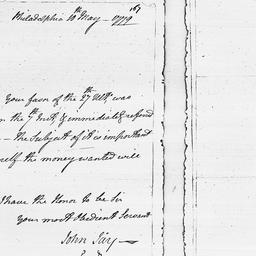 167
Philadelphia 10th May - 1779
Your favor of the 27 Ult. was
on the 7th Inst. & immediately refered
- The Subject of it is important
self the money wanted will
I have the Honor to be Sir
Your most Obedient Servant
John Jay